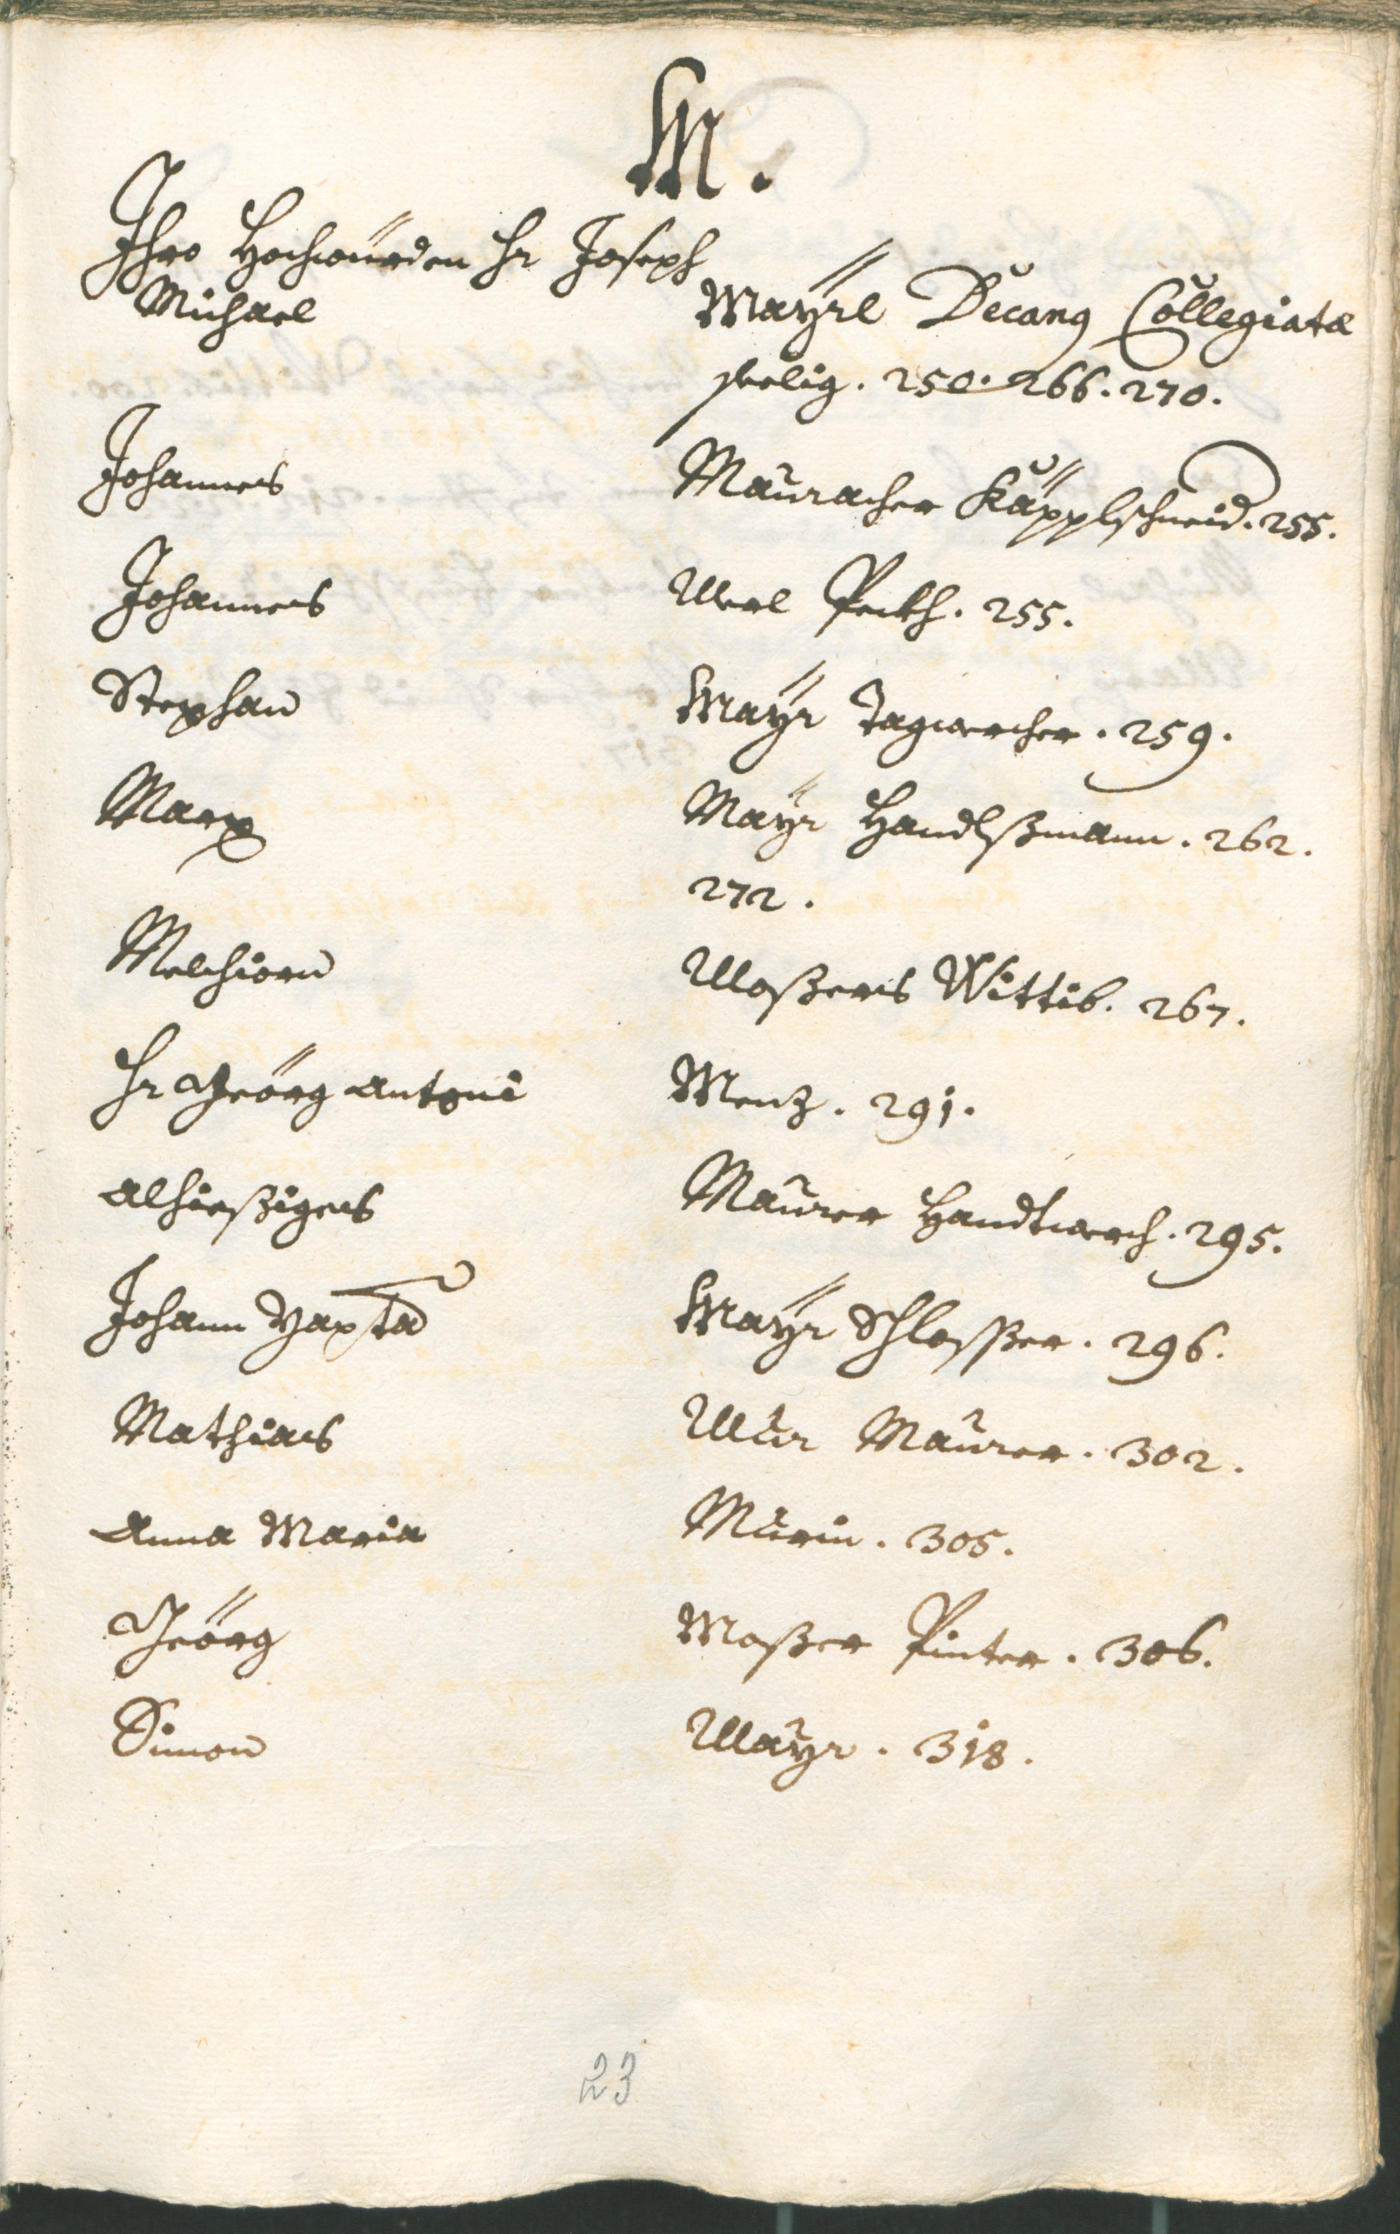 M.
Ihro Hochwürden Hr Joseph
Michael Mayrl Decang Collegiatæ
seelig. 250. 266. 270.
Johannes Mauracher Käpplschneid. 255.
Johannes Merl Peckh. 255.
Stephan Mayr Tagwercher. 259.
Marx Mayr Handlßmann. 262.
272.
Melchiorn Moßers Wittib. 267.
Hr Geörg Antoni Menz. 291.
Alhießiges Maurer Handtwerch. 295.
Johann Bapta Mayr Schlosßer. 296.
Mathias Mur Maurer. 302.
Anna Maria Murin. 305.
Geörg Moßer Pinter. 306.
Simon Mayr. 318.
23